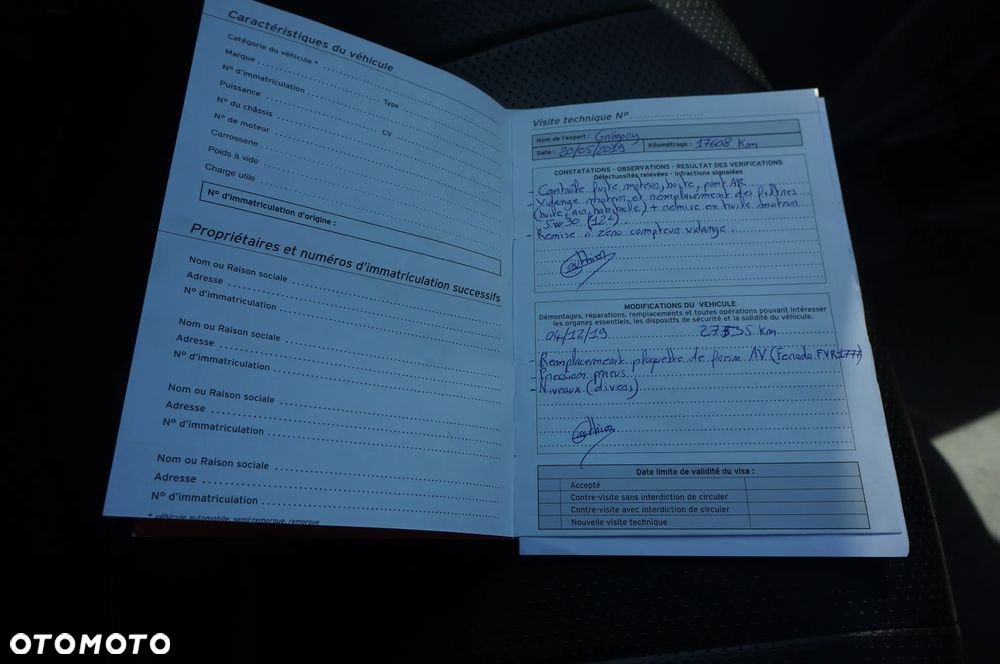 Caractéristiques du véhicule
Catégorie du véhicule *
Marque
N° d'immatriculation Type
Puissance CV
N° du châssis
N° de moteur
Carrosserie
Poids à vide
Charge utile
N° d'immatriculation d'origine :
Propriétaires et numéros d'immatriculation successifs
Nom ou Raison sociale
Adresse
N° d'immatriculation
Nom ou Raison sociale
Adresse
N° d'immatriculation
Nom ou Raison sociale
Adresse
N° d'immatriculation
Nom ou Raison sociale
Adresse
N° d'immatriculation
* véhicule automobile, semi-remorque, remorque
Visite technique N°
Nom de l'expert : Grégory
Date : 20/05/2019 Kilométrage : 17608 Km
CONSTATATIONS - OBSERVATIONS - RESULTAT DES VERIFICATIONS
Défectuosités relevées - infractions signalées
- Contrôle fuite moteur, boite, pont AR
- Vidange moteur et remplacement des filtres
(huile, air, habitacle) + remise en huile moteur
5w30 (12L)
- Remise à zéro compteur vidange
MODIFICATIONS DU VEHICULE
Démontages, réparations, remplacements et toutes opérations pouvant intéresser
les organes essentiels, les dispositifs de sécurité et la solidité du véhicule.
04/12/19 27535 Km
- Remplacement plaquette de frein AV (Ferodo FVR1777)
- Pression pneus
- Niveaux (divers)
Date limite de validité du visa :
Accepté
Contre-visite sans interdiction de circuler
Contre-visite avec interdiction de circuler
Nouvelle visite technique
OTOMOTO